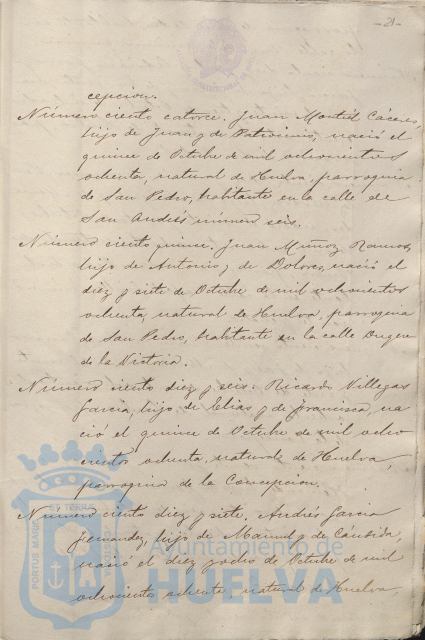 -21-
cepcion.
Número ciento catorce. Juan Montiel Cáceres,
hijo de Juan y de Patrocinio, nació el
quince de Octubre de mil ochocientos
ochenta, natural de Huelva, parroquia
de San Pedro, habitante en la calle de
San Andrés número seis.
Número ciento quince. Juan Muñoz Ramos,
hijo de Antonio y de Dolores, nació el
diez y siete de Octubre de mil ochocientos
ochenta, natural de Huelva, parroquia
de San Pedro, habitante en la calle Duque
de la Victoria.
Número ciento diez y seis. Ricardo Villegas
Garcia, hijo de Elias y de Francisca, na
ció el quince de Octubre de mil ocho
cientos ochenta, natural de Huelva,
parroquia de la Concepcion.
Número ciento diez y siete. Andrés Garcia
Fernandez, hijo de Manuel y de Cándida,
nació el diez y ocho de Octubre de mil
ochocientos ochenta, natural de Huelva,
PORTUS MARIS ET TERRAE
Ayuntamiento de
HUELVA